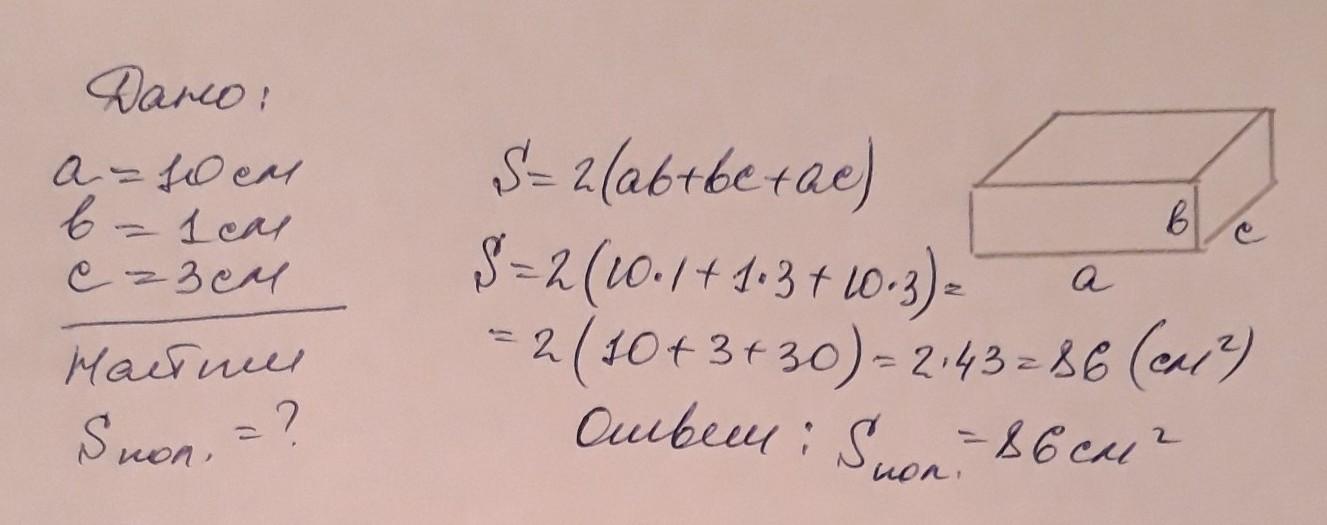 Дано:
a = 10 см
в = 1 см
c = 3 см
Найти
Sпол. = ?
S = 2(aв+вc+ac)
S = 2(10·1+1·3+10·3) =
= 2(10+3+30) = 2·43 = 86 (см²)
Ответ: Sпол. = 86 см²
в
c
a